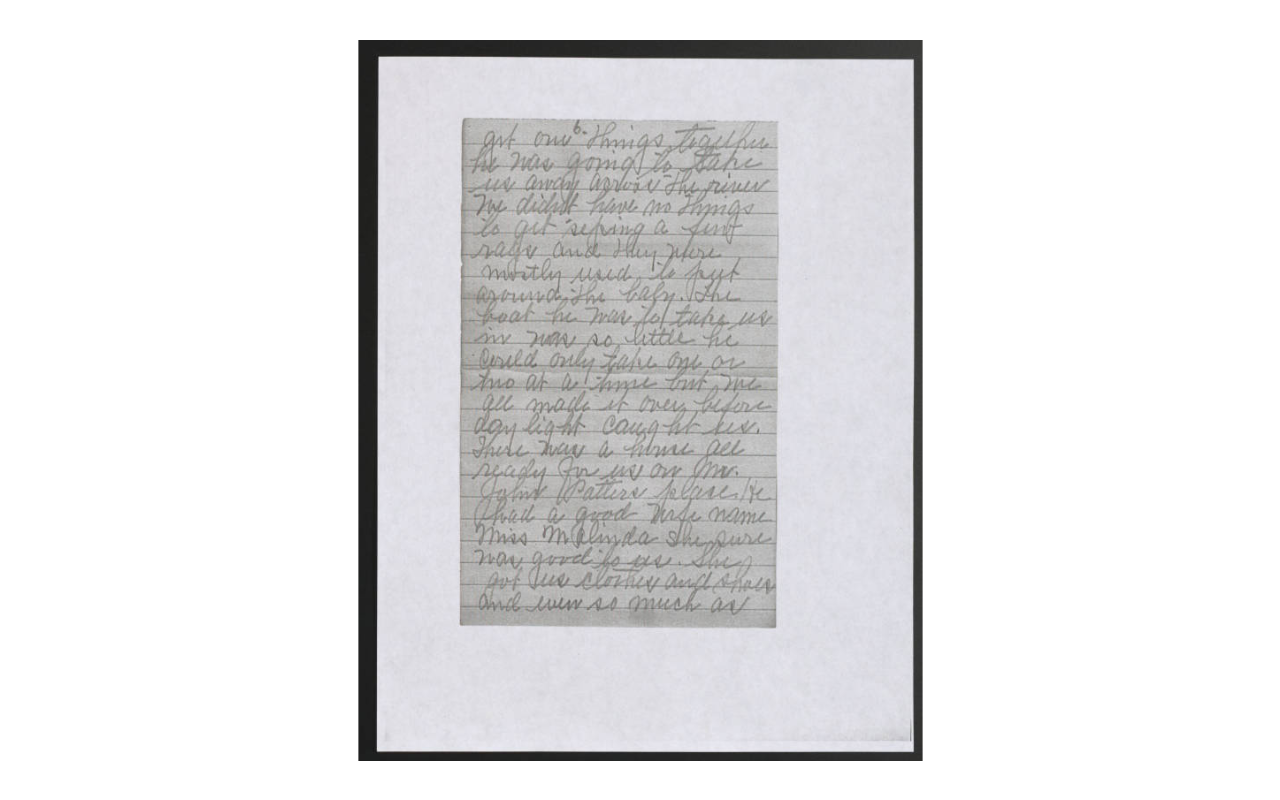 6.
get our things together
he was going to take
us away across the river
we didn't have no things
to get seping a few
rags and they were
mostly used to put
around the baby. The
boat he was to take us
in was so little he
could only take one or
two at a time but we
all made it over before
day light caught us.
There was a house all
ready for us on Mr.
John Patters place. He
had a good wife name
Miss Malinda she sure
was good to us. She
got us clothes and shoes
and even so much as